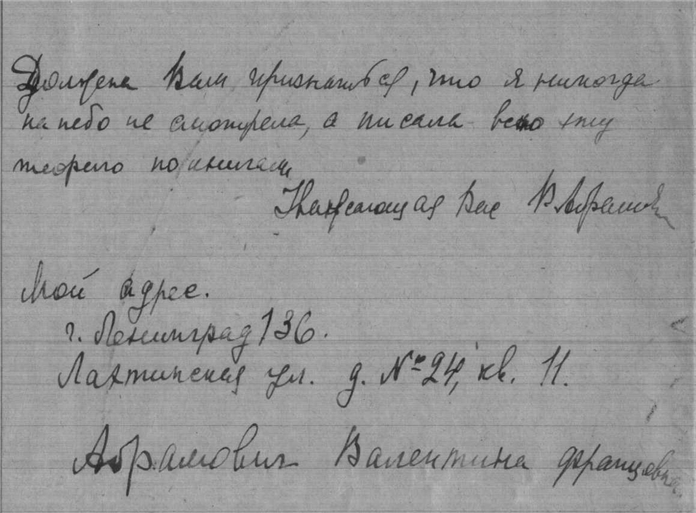 Должена Вам признаться, что я никогда
на небо не смотрела, а писала всю эту
теорию по книгам
Уважающая Вас В. Абрамович
Мой адрес.
г. Ленинград 136.
Лахтинская ул. д. № 24, кв. 11.
Абрамович Валентина Францовна